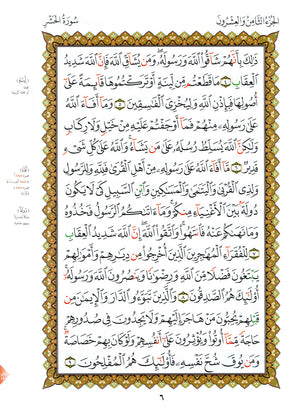 الجزء الثامن والعشرون
سورة الحشر
ذَٰلِكَ بِأَنَّهُمْ شَاقُّوا۟ ٱللَّهَ وَرَسُولَهُۥ وَمَن يُشَآقِّ ٱللَّهَ فَإِنَّ ٱللَّهَ شَدِيدُ
ٱلْعِقَابِ ٤ مَا قَطَعْتُم مِّن لِّينَةٍ أَوْ تَرَكْتُمُوهَا قَآئِمَةً عَلَىٰٓ
أُصُولِهَا فَبِإِذْنِ ٱللَّهِ وَلِيُخْزِىَ ٱلْفَٰسِقِينَ ٥ وَمَآ أَفَآءَ ٱللَّهُ
عَلَىٰ رَسُولِهِۦ مِنْهُمْ فَمَآ أَوْجَفْتُمْ عَلَيْهِ مِنْ خَيْلٍ وَلَا رِكَابٍ
وَلَٰكِنَّ ٱللَّهَ يُسَلِّطُ رُسُلَهُۥ عَلَىٰ مَن يَشَآءُ وَٱللَّهُ عَلَىٰ كُلِّ شَىْءٍ
قَدِيرٌ ٦ مَّآ أَفَآءَ ٱللَّهُ عَلَىٰ رَسُولِهِۦ مِنْ أَهْلِ ٱلْقُرَىٰ فَلِلَّهِ وَلِلرَّسُولِ
وَلِذِى ٱلْقُرْبَىٰ وَٱلْيَتَٰمَىٰ وَٱلْمَسَٰكِينِ وَٱبْنِ ٱلسَّبِيلِ كَىْ لَا يَكُونَ
دُولَةًۢ بَيْنَ ٱلْأَغْنِيَآءِ مِنكُمْ وَمَآ ءَاتَىٰكُمُ ٱلرَّسُولُ فَخُذُوهُ
وَمَا نَهَىٰكُمْ عَنْهُ فَٱنتَهُوا۟ وَٱتَّقُوا۟ ٱللَّهَ إِنَّ ٱللَّهَ شَدِيدُ ٱلْعِقَابِ
٧ لِلْفُقَرَآءِ ٱلْمُهَٰجِرِينَ ٱلَّذِينَ أُخْرِجُوا۟ مِن دِيَٰرِهِمْ وَأَمْوَٰلِهِمْ
يَبْتَغُونَ فَضْلًا مِّنَ ٱللَّهِ وَرِضْوَٰنًا وَيَنصُرُونَ ٱللَّهَ وَرَسُولَهُۥٓ
أُو۟لَٰٓئِكَ هُمُ ٱلصَّٰدِقُونَ ٨ وَٱلَّذِينَ تَبَوَّءُو ٱلدَّارَ وَٱلْإِيمَٰنَ مِن
قَبْلِهِمْ يُحِبُّونَ مَنْ هَاجَرَ إِلَيْهِمْ وَلَا يَجِدُونَ فِى صُدُورِهِمْ
حَاجَةً مِّمَّآ أُوتُوا۟ وَيُؤْثِرُونَ عَلَىٰٓ أَنفُسِهِمْ وَلَوْ كَانَ بِهِمْ خَصَاصَةٌ
وَمَن يُوقَ شُحَّ نَفْسِهِۦ فَأُو۟لَٰٓئِكَ هُمُ ٱلْمُفْلِحُونَ ٩
٦